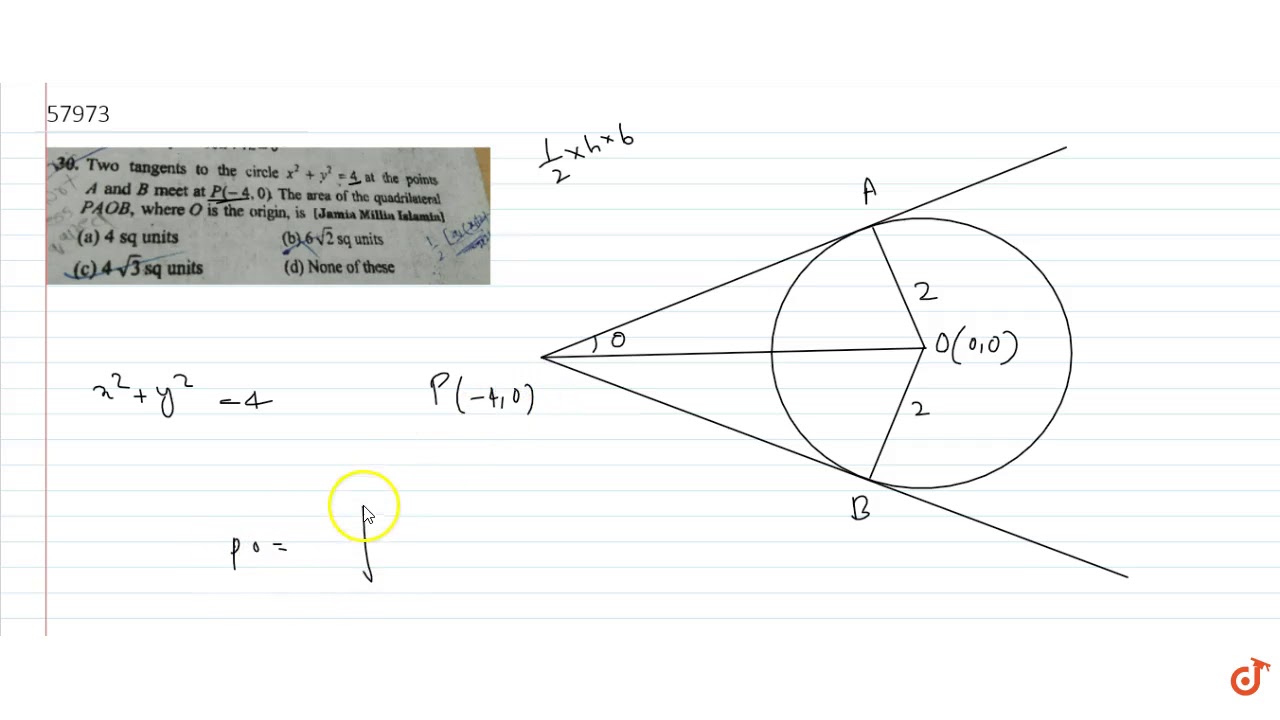 57973
30. Two tangents to the circle x² + y² = 4 at the points
A and B meet at P(– 4, 0). The area of the quadrilateral
PAOB, where O is the origin, is [Jamia Millia Islamia]
(a) 4 sq units
(b) 6√2 sq units
(c) 4√3 sq units
(d) None of these
1/2 × h × b
A
2
θ
O(0,0)
x² + y² = 4
P(-4,0)
2
B
PO =